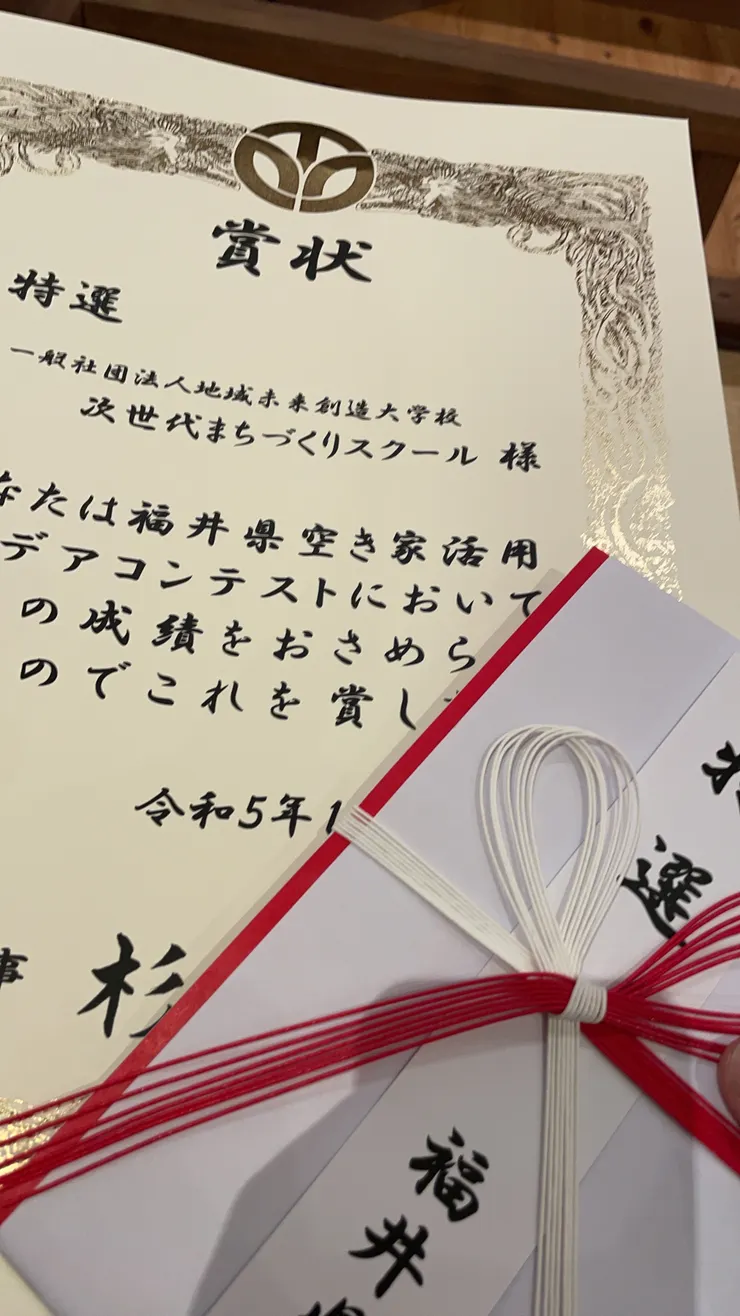 賞状
特選
一般社団法人地域未来創造大学校
次世代まちづくりスクール 様
なたは福井県空き家活用
デアコンテストにおいて
の成績をおさめら
のでこれを賞し
令和5年1
事 杉
特選
福井県